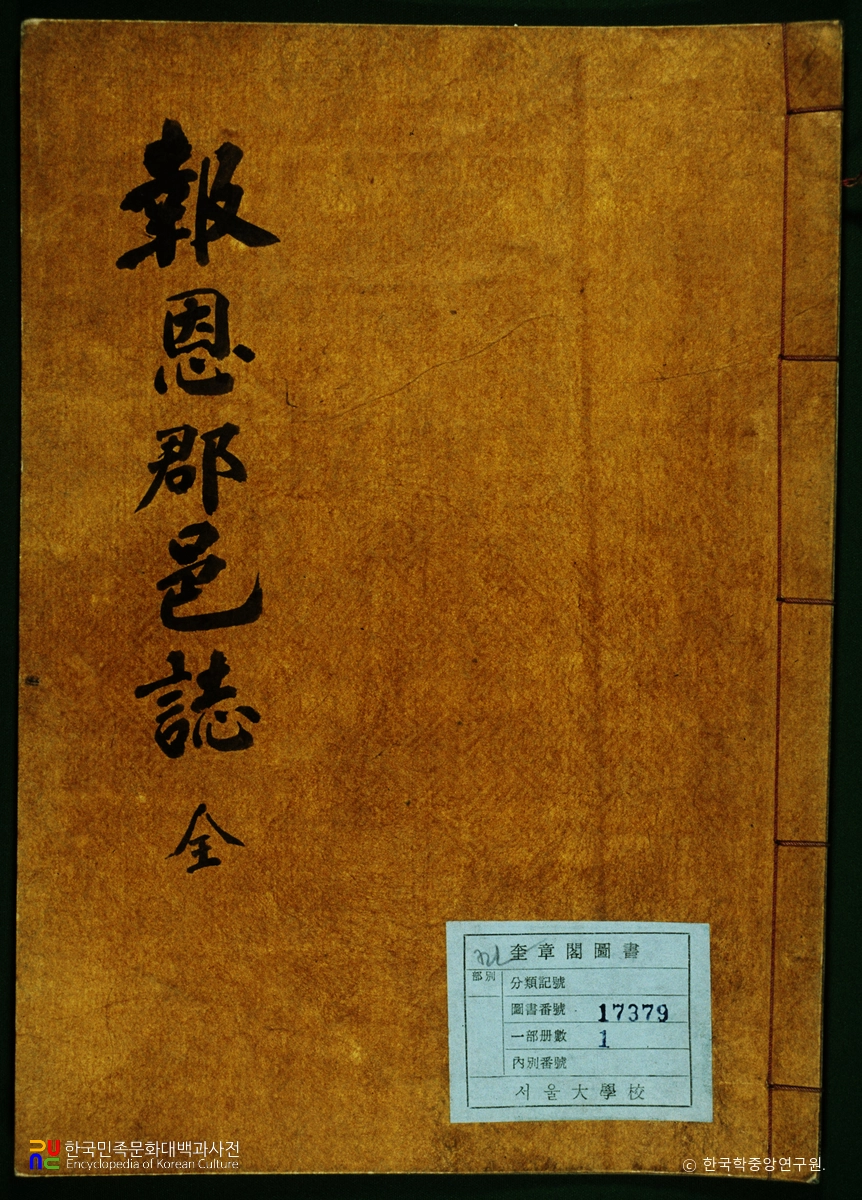 報恩郡邑誌 全
奎章閣圖書
部別
分類記號
圖書番號 17379
一部册數 1
內別番號
서울大學校
한국민족문화대백과사전
Encyclopedia of Korean Culture
ⓒ 한국학중앙연구원.